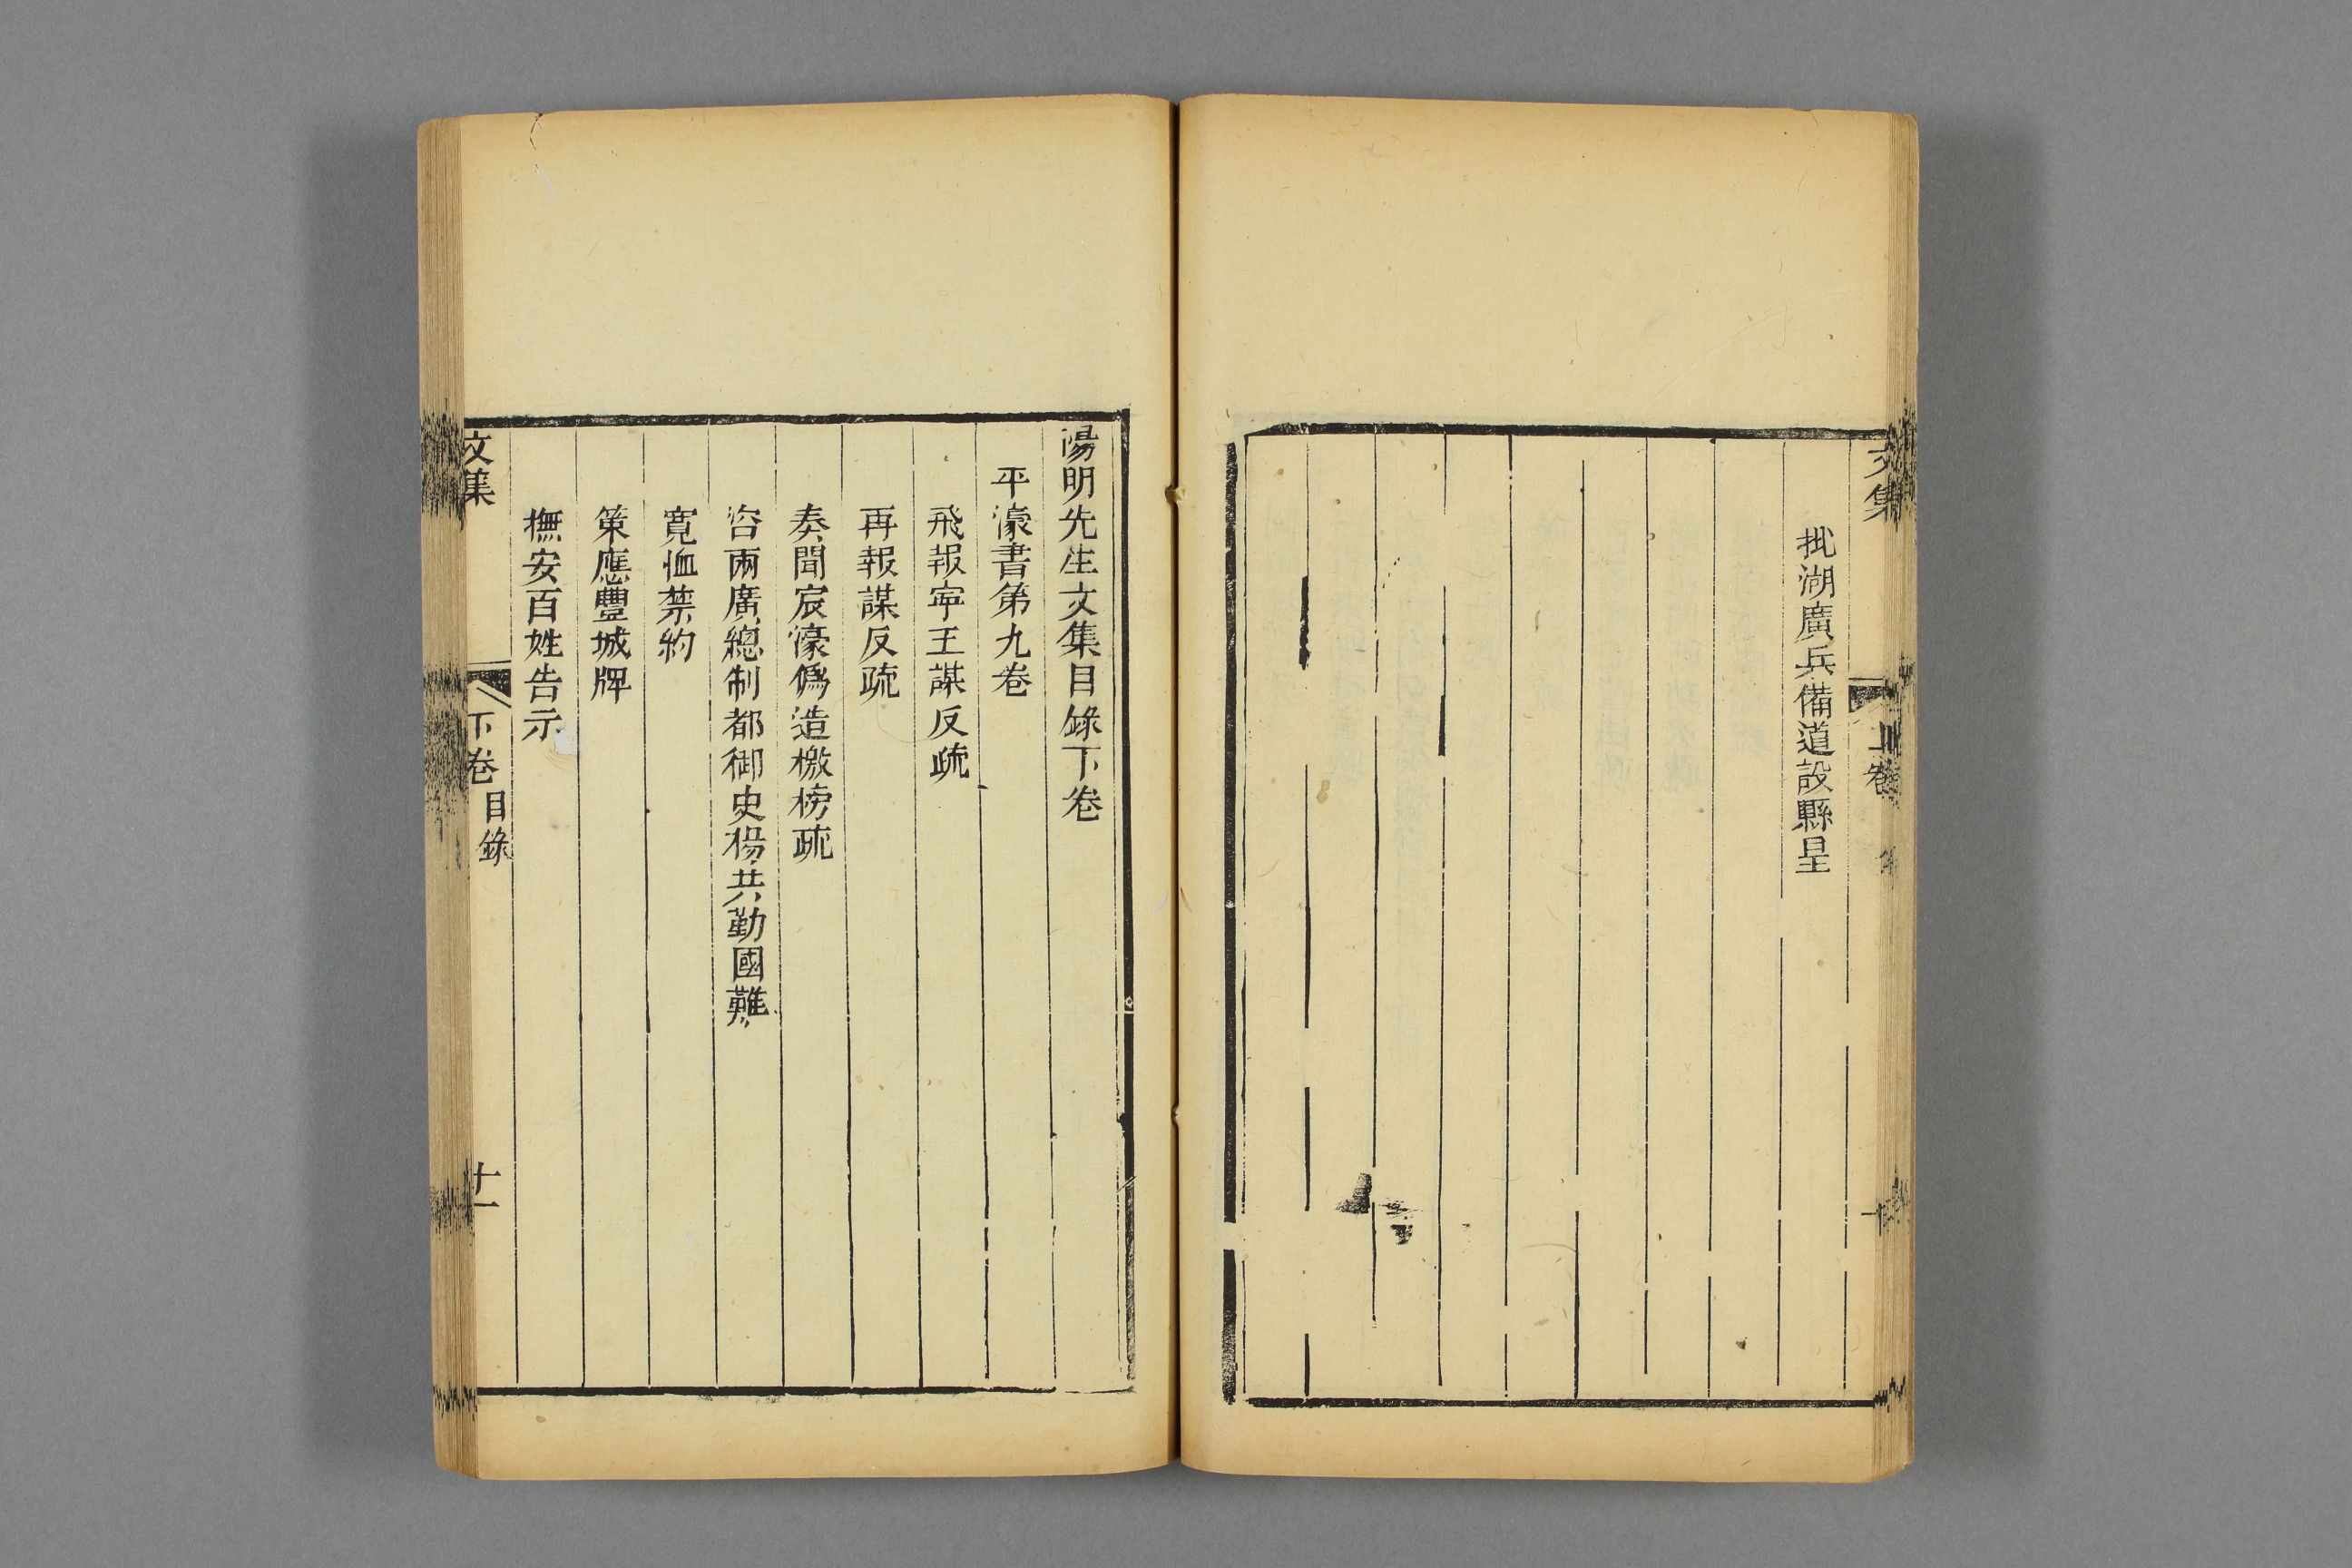 文集
上卷
批湖廣兵備道設縣呈
陽明先生文集目錄下卷
平濠書第九卷
飛報寜王謀反疏
再報謀反疏
奏聞宸濠僞造檄榜疏
咨兩廣總制都御史楊共勤國難
寛恤禁約
策應豐城牌
撫安百姓告示
文集
下卷
目錄
十一